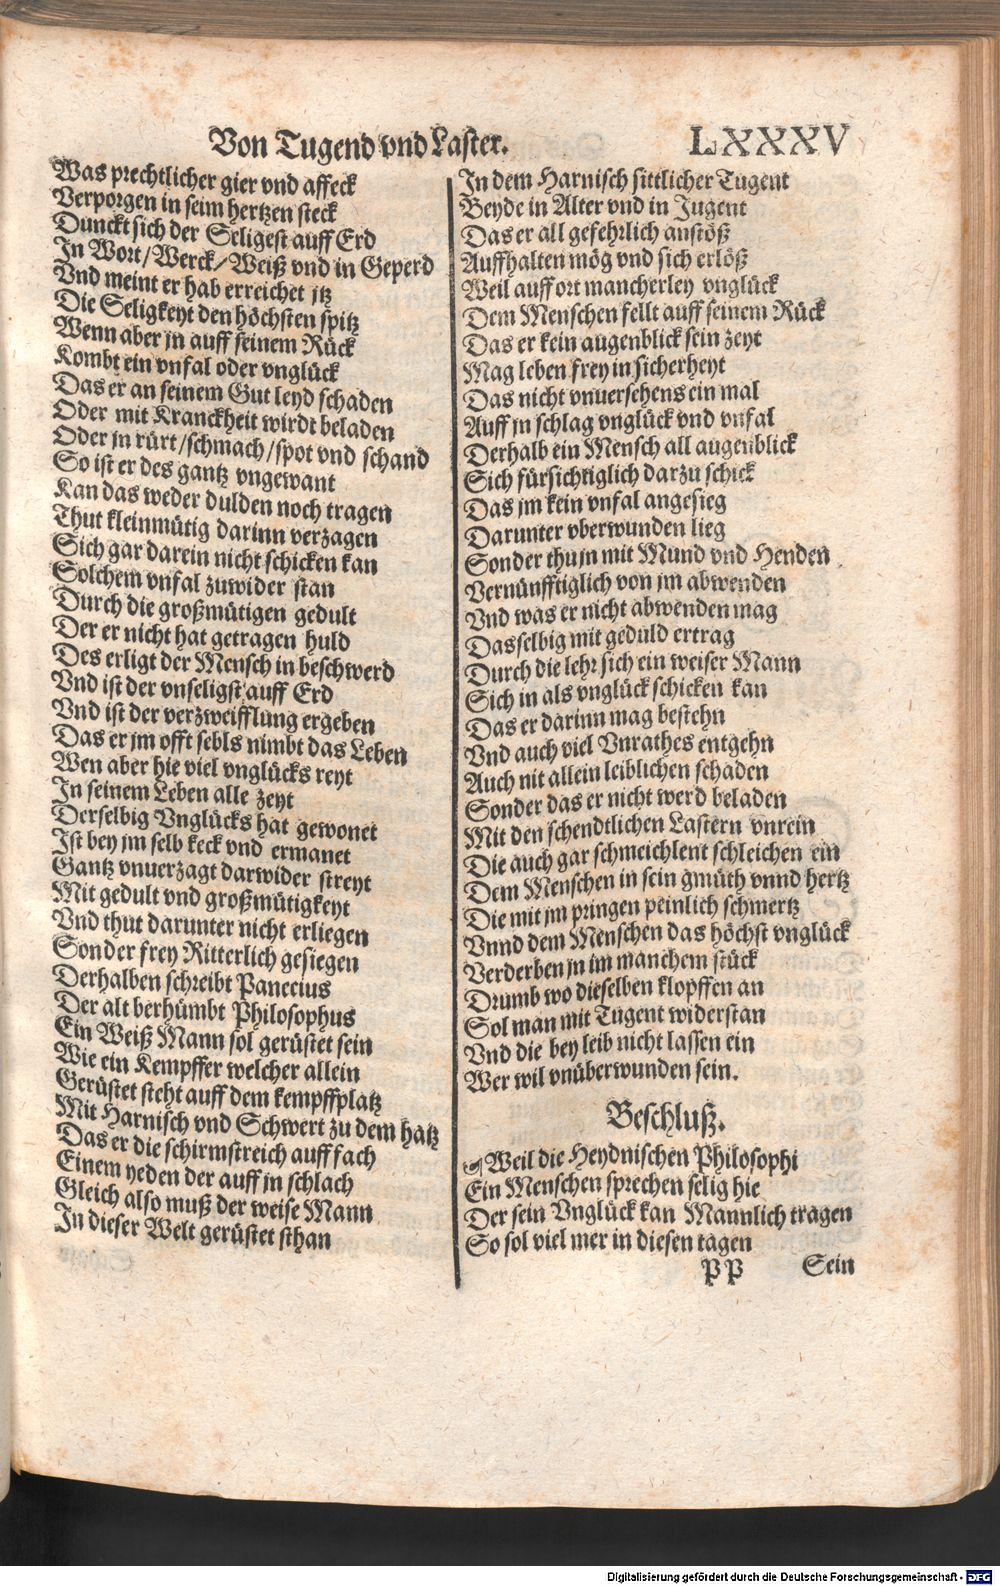 Von Tugend vnd Laster.
LXXXV
Was prechtlicher gier vnd affeck
Verporgen in seim hertzen steck
Dunckt sich der Seligest auff Erd
In Wort/Werck/Weiß vnd in Geperd
Vnd meint er hab erreichet jtz
Die Seligkeyt den höchsten spitz
Wenn aber jn auff seinem Rück
Kombt ein vnfal oder vnglück
Das er an seinem Gut leyd schaden
Oder mit Kranckheit wirdt beladen
Oder jn rürt/schmach/spot vnd schand
So ist er des gantz vngewant
Kan das weder dulden noch tragen
Thut kleinmütig darinn verzagen
Sich gar darein nicht schicken kan
Solchem vnfal zuwider stan
Durch die großmütigen gedult
Der er nicht hat getragen huld
Des erligt der Mensch in beschwerd
Vnd ist der vnseligst auff Erd
Vnd ist der verzweifflung ergeben
Das er jm offt sebls nimbt das Leben
Wen aber hie viel vnglücks reyt
In seinem Leben alle zeyt
Derselbig Vnglücks hat gewonet
Ist bey jm selb keck vnd ermanet
Gantz vnuerzagt darwider streyt
Mit gedult vnd großmütigkeyt
Vnd thut darunter nicht erliegen
Sonder frey Ritterlich gesiegen
Derhalben schreibt Panecius
Der alt berhümbt Philosophus
Ein Weiß Mann sol gerüstet sein
Wie ein Kempffer welcher allein
Gerüstet steht auff dem kempffplatz
Mit Harnisch vnd Schwert zu dem hatz
Das er die schirmstreich auff fach
Einem yeden der auff jn schlach
Gleich also muß der weise Mann
In dieser Welt gerüstet sthan
In dem Harnisch sittlicher Tugent
Beyde in Alter vnd in Jugent
Das er all gefehrlich anstöß
Auffhalten mög vnd sich erlöß
Weil auff ort mancherley vnglück
Dem Menschen fellt auff seinem Rück
Das er kein augenblick sein zeyt
Mag leben frey in sicherheyt
Das nicht vnuersehens ein mal
Auff jn schlag vnglück vnd vnfal
Derhalb ein Mensch all augenblick
Sich fürsichtiglich darzu schick
Das jm kein vnfal angesieg
Darunter vberwunden lieg
Sonder thu jn mit Mund vnd Henden
Vernünfftiglich von jm abwenden
Vnd was er nicht abwenden mag
Dasselbig mit geduld ertrag
Durch die lehr sich ein weiser Mann
Sich in als vnglück schicken kan
Das er darinn mag bestehn
Vnd auch viel Vnrathes entgehn
Auch nit allein leiblichen schaden
Sonder das er nicht werd beladen
Mit den schendtlichen Lastern vnrein
Die auch gar schmeichlent schleichen ein
Dem Menschen in sein gmüth vnnd hertz
Die mit jm pringen peinlich schmertz
Vnnd dem Menschen das höchst vnglück
Verderben jn im manchem stück
Drumb wo dieselben klopffen an
Sol man mit Tugent widerstan
Vnd die bey leib nicht lassen ein
Wer wil vnüberwunden sein.
Beschluß.
Weil die Heydnischen Philosophi
Ein Menschen sprechen selig hie
Der sein Vnglück kan Mannlich tragen
So sol viel mer in diesen tagen
PP Sein
Digitalisierung gefördert durch die Deutsche Forschungsgemeinschaft - DFG